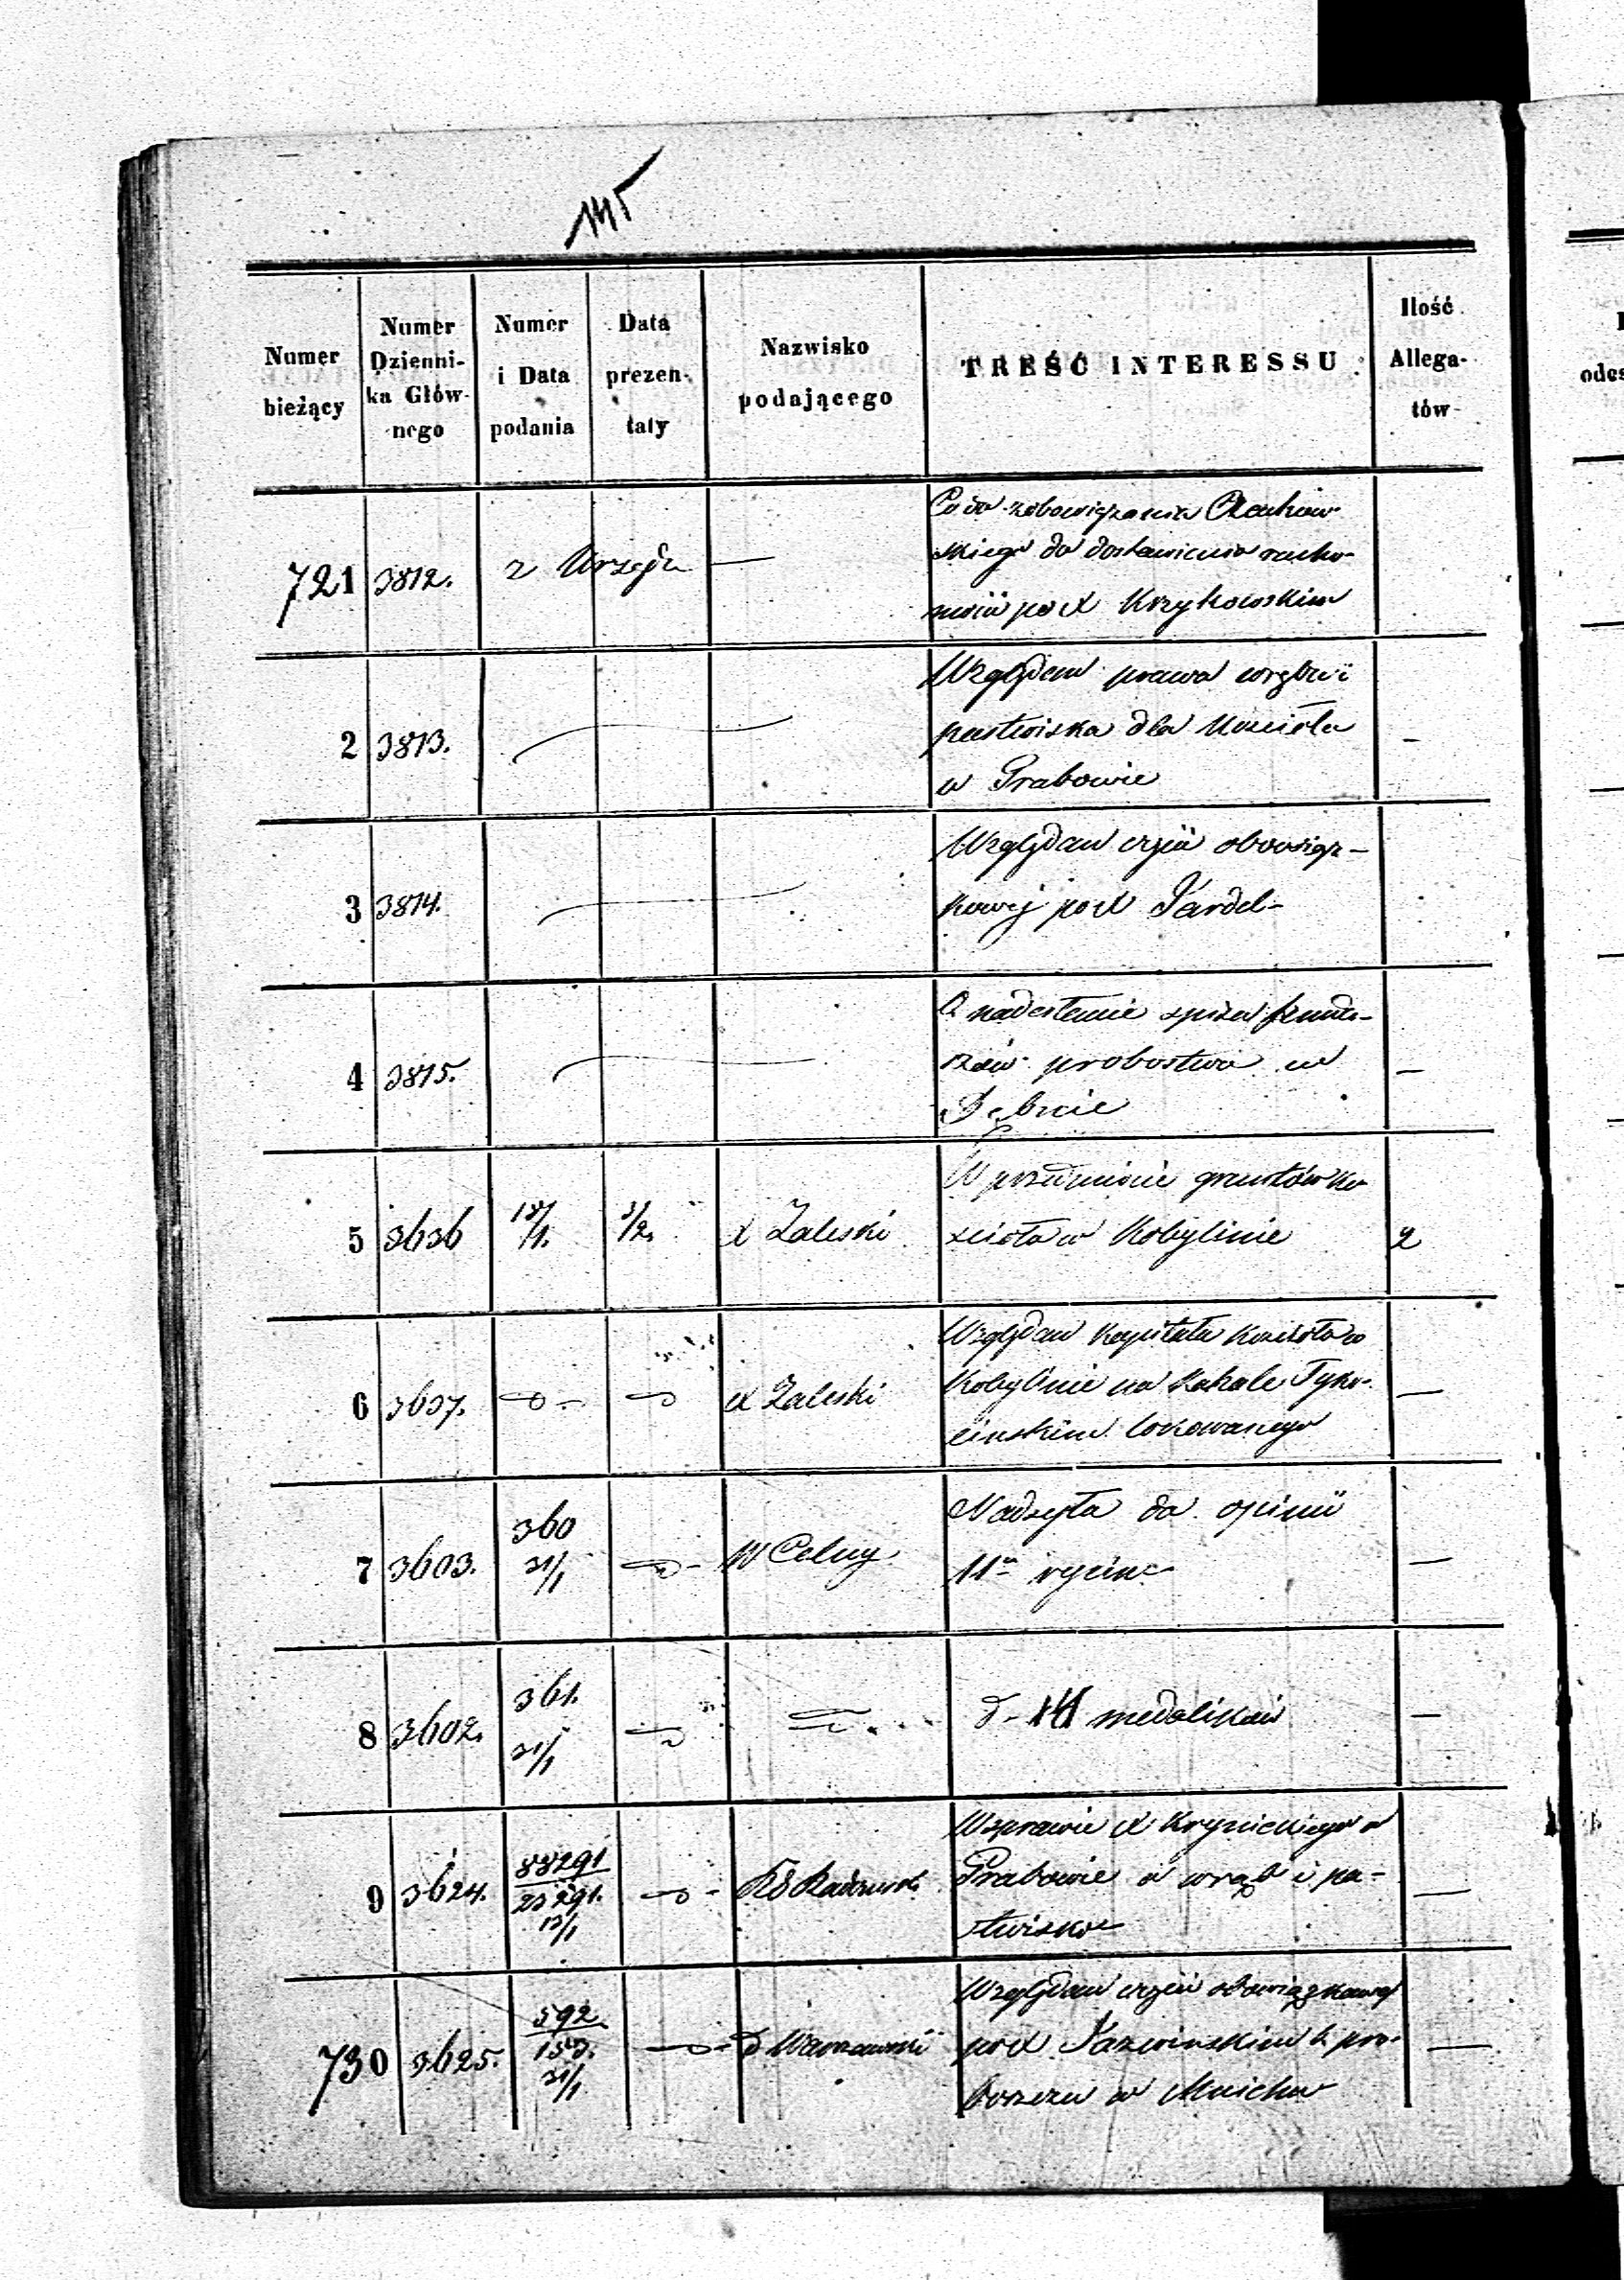 145
Numer bieżący
Numer Dzienni-
ka Głów-
nego
Numer i Data podania
Data prezen-
taty
Nazwisko podającego
TREŚĆ INTERESSU
Ilość Allega-
tów
721 3812. z Urzędu —
Co do zobowiązania
skiego do dostawienia rucho-
mości po X Krzykowskim
2 3813.
Względem prawa wrębu i
pastwiska dla Kościoła —
w Grabowie
3 3814.
Względem czyści obowiąz-
kowej po X
4 3815.
O nadesłanie spisu fundu-
szów probostwa w —
Dębnie
5 3636 18/1. 3/2. X Zaleski
W przedmiocie gruntów ko
scioła w Kobylinie 2
6 3637. X Zaleski
Względem kapitału kościoła w
Kobylinie na Kahale Tyko- —
cinskim lokowanego
7 3603. 360
31/1 W Celny
Nadsyła do opinii —
11 rycin
8 3602. 361.
31/1
d- medalików —
9 3624. 88291
23291.
13/1
W sprawie X Krynickiego w
Grabowie o wrąb i pa- —
stwisko
730 3625. 592
153.
31/1 D Warszawski
Względem czyści obowiązkowej
po X b. pro- —
boszczu w